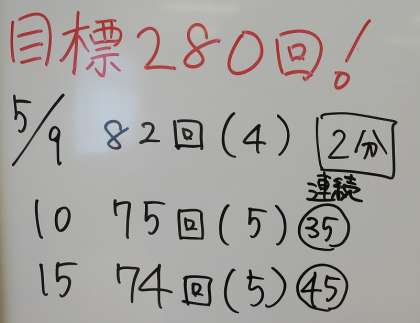 目標280回!
5/9 82回(4) 2分
連続
10 75回(5) 35
15 74回(5) 45